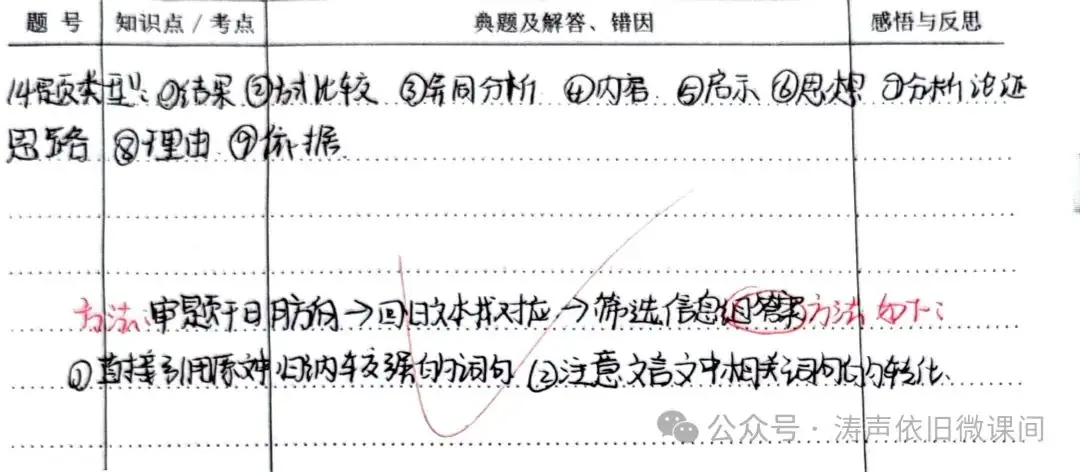 题 号 知识点 / 考点 典题及解答、错因 感悟与反思
14题类型：①结果 ②方式比较 ③异同分析 ④内容 ⑤启示 ⑥思想 ⑦分析论证
思路 ⑧理由 ⑨依据
方法：审题干明方向→回归文本找对应→筛选信息组答案方法如下：
①直接引用原文中归纳性较强的词句 ②注意文言文中相关词句的转化、
公众号 · 涛声依旧微课间